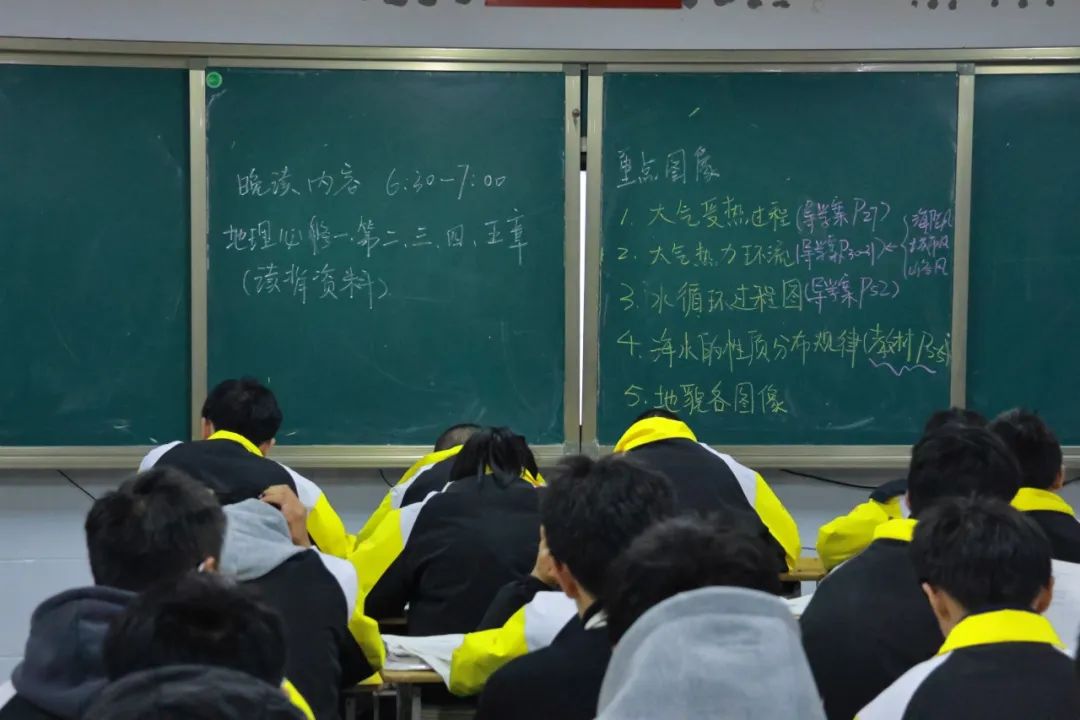 晚读内容 6:30-7:00
地理必修一、第二、三、四、五章
(读背资料)
重点图像
1. 大气受热过程(导学案P27)
2. 大气热力环流(导学案P30-31)←{海陆风
山谷风
3. 水循环过程图(导学案P52)
4. 海水的性质分布规律(教材P55)
5. 地貌各图像